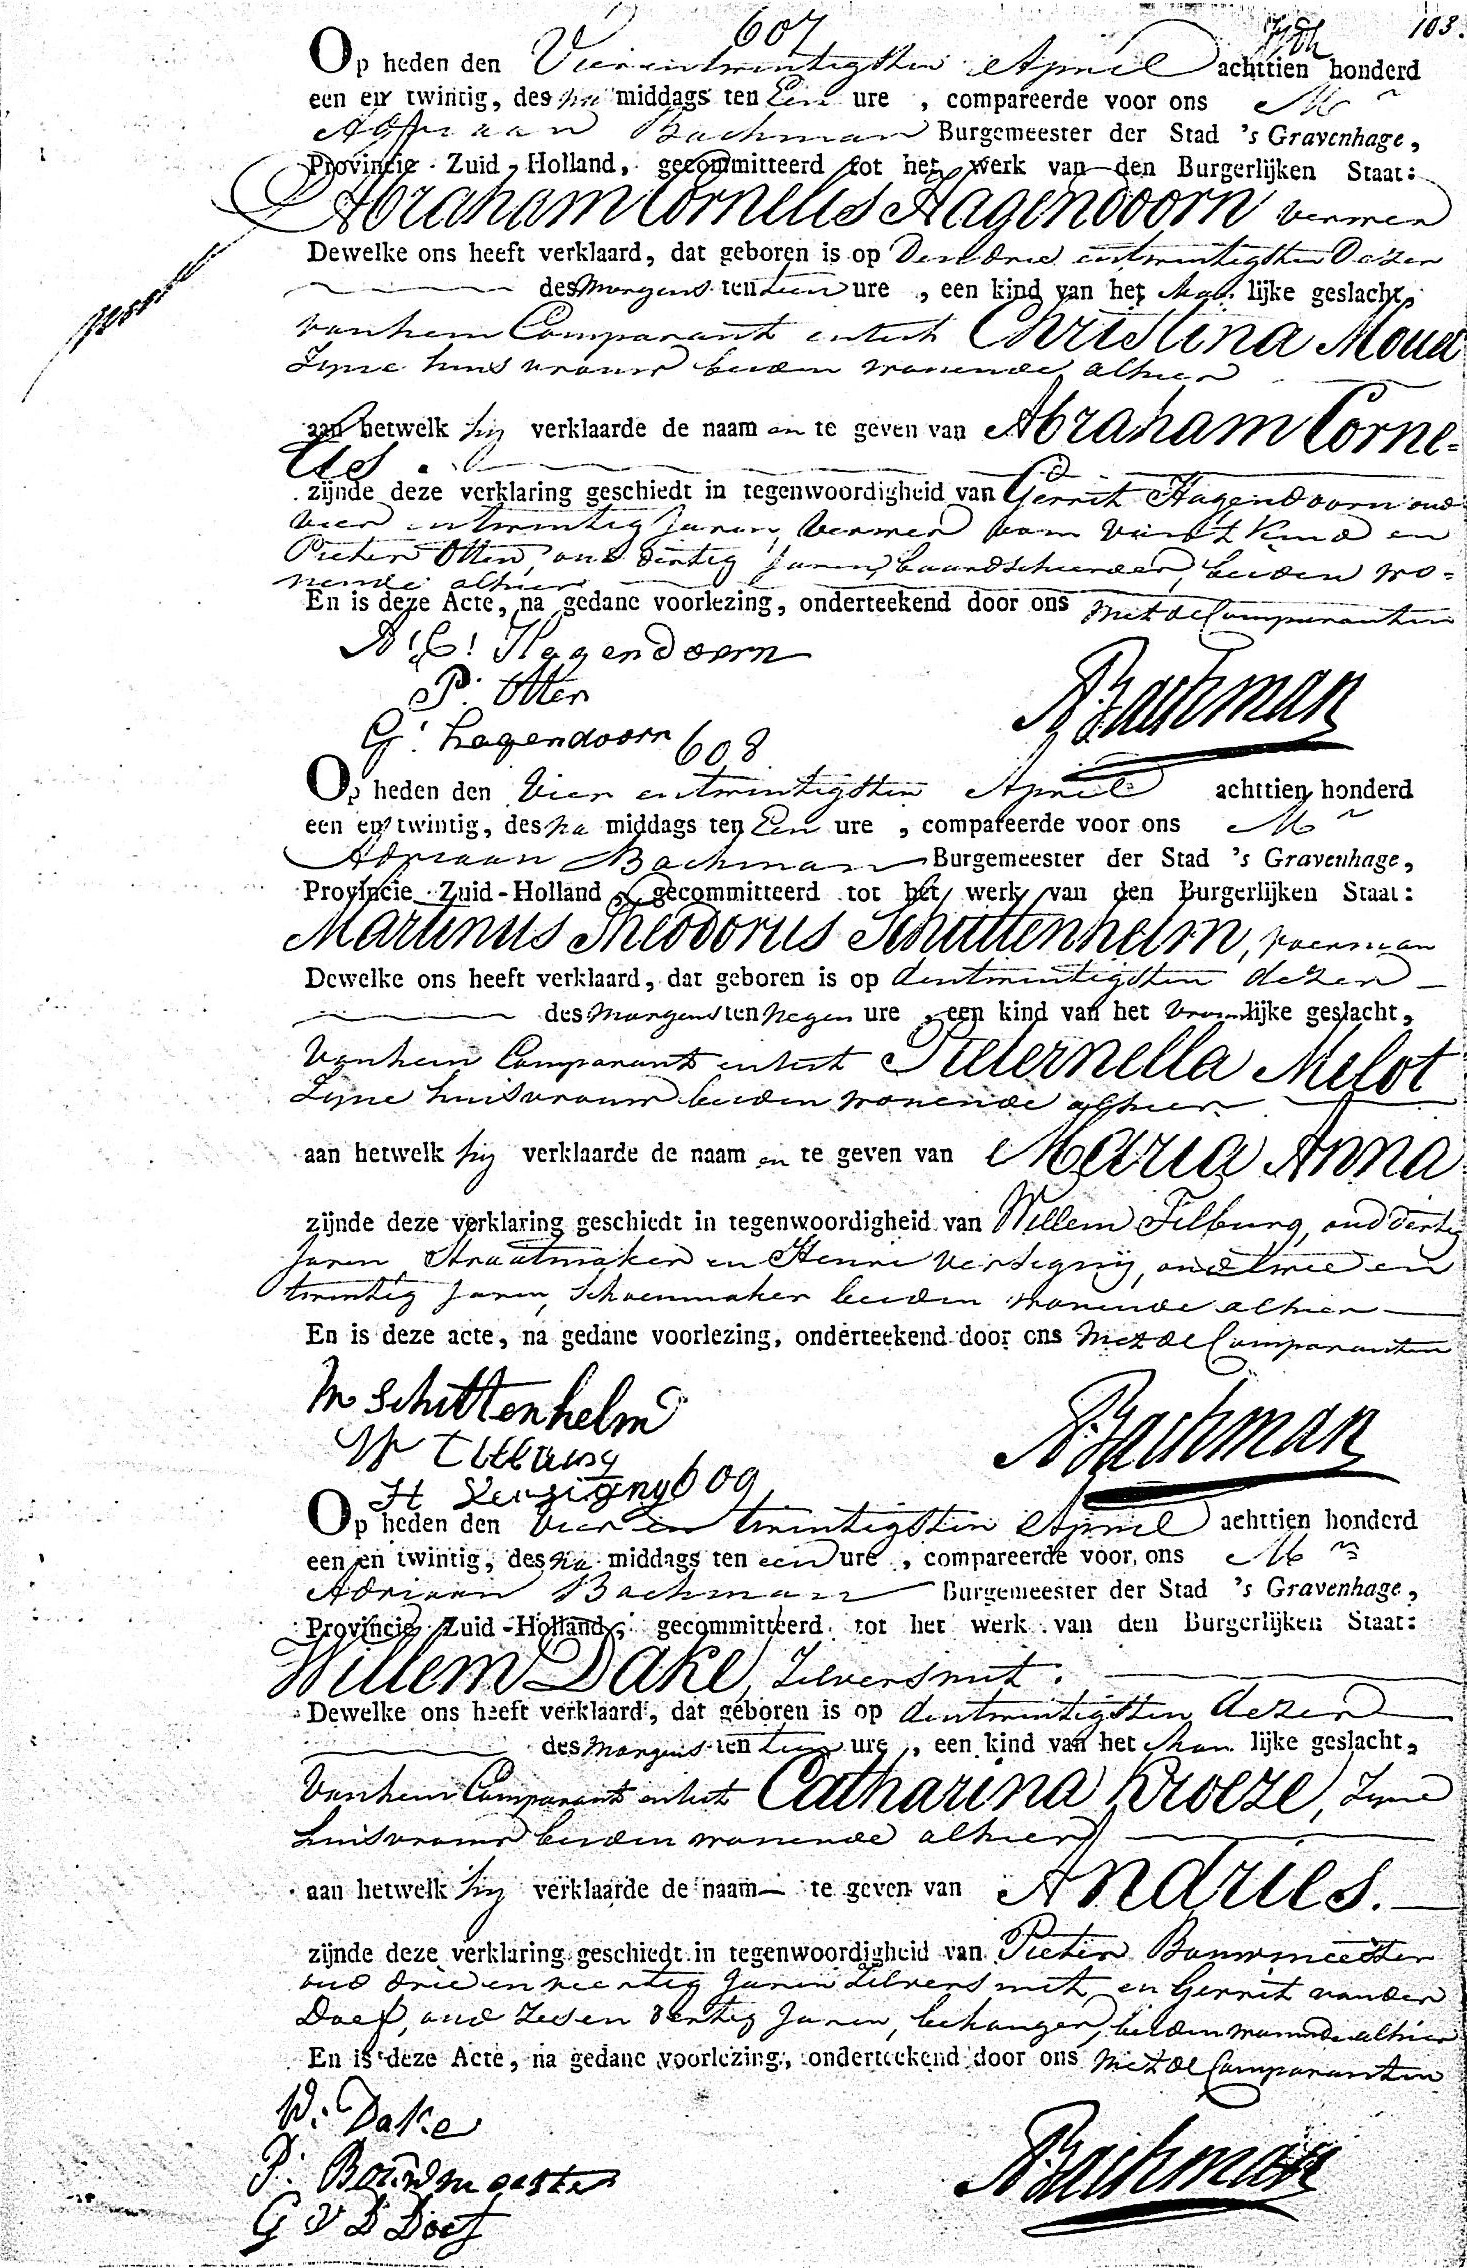 607
103.
Op heden den Vierentwintigsten April achttien honderd
een en twintig, des na middags ten Een ure , compareerde voor ons Mr
Adriaan Bachman Burgemeester der Stad 's Gravenhage,
Provincie Zuid-Holland, gecommitteerd tot het werk van den Burgerlijken Staat:
Abraham Cornelis Hagendoorn verwer
Dewelke ons heeft verklaard, dat geboren is op Den drie entwintigsten Dezer
des Morgens ten tien ure , een kind van het Man lijke geslacht,
van hem Comparant en uit Christina Mouet
Zyne huisvrouw beiden wonende alhier
aan hetwelk hy verklaarde de naam en te geven van Abraham Corne=
lis .
zijnde deze verklaring geschiedt in tegenwoordigheid van Gerrit Hagendoorn oud
vier entwintig jaren, verwer oom van 't kind en
Pieter Otten, oud dertig jaren, baardscheerder, beiden wo=
nende alhier
En is deze Acte, na gedane voorlezing, onderteekend door ons met de Comparanten
A: C: Hagendoorn
P. Otten
G: hagendoorn
ABachman
608
Op heden den Vier entwintigsten April achttien honderd
een en twintig, des na middags ten Een ure , compareerde voor ons Mr
Adriaan Bachman Burgemeester der Stad 's Gravenhage,
Provincie Zuid-Holland, gecommitteerd tot het werk van den Burgerlijken Staat:
Martinus Theodorus Schittenhelm, voerman
Dewelke ons heeft verklaard, dat geboren is op dentwintigsten dezer
des Morgens ten Negen ure , een kind van het vrouwlijke geslacht,
Van hem Comparant en uit Pieternella Melot
Zyne huisvrouw beiden wonende alhier
aan hetwelk hy verklaarde de naam en te geven van Maria Anna
zijnde deze verklaring geschiedt in tegenwoordigheid van Willem Tilburg, oud dertig
Jaren Straatmaker en Henri Versigny, oud twee en
twintig Jaren, Schoenmaker beiden wonende alhier
En is deze acte, na gedane voorlezing, onderteekend door ons Met de Comparanten
M Schittenhelm
W Tilburg
H Versigny
ABachman
609
Op heden den Vier en twintigsten April achttien honderd
een en twintig, des na middags ten een ure , compareerde voor ons Mr
Adriaan Bachman Burgemeester der Stad 's Gravenhage,
Provincie Zuid-Holland, gecommitteerd tot het werk van den Burgerlijken Staat:
Willem Dake, Zilversmit.
Dewelke ons heeft verklaard, dat geboren is op dentwintigsten dezer
des Morgens ten tien ure , een kind van het Man lijke geslacht,
Van hem Comparant en uit Catharina Kroeze, Zyne
huisvrouw beiden wonende alhier
aan hetwelk hy verklaarde de naam — te geven van Andries.
zijnde deze verklaring geschiedt in tegenwoordigheid van Pieter Bouwmeester
oud drie en veertig Jaren Zilversmit en Gerrit vander
Does, oud Zes en dertig Jaren, behanger, beiden wonende alhier
En is deze Acte, na gedane voorlezing, onderteekend door ons Met de Comparanten
W: Dake
P: Bouwmeester
G V D Does
ABachman